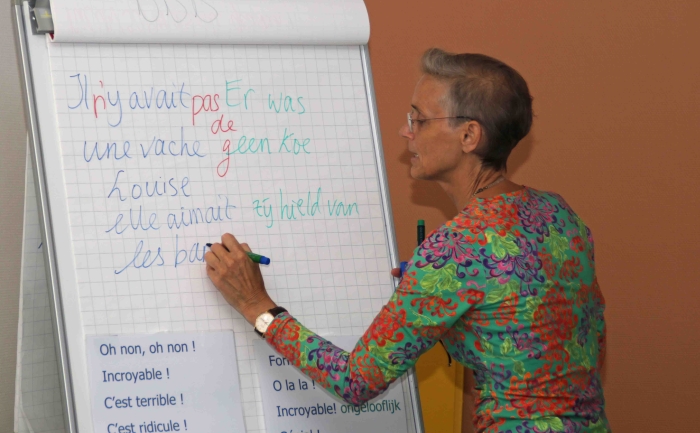 Il n'y avait pas Er was
de
une vache geen koe
Louise
elle aimait zij hield van
les ba
Oh non, oh non !
Incroyable !
C'est terrible !
C'est ridicule !
O la la !
Incroyable! ongelooflijk